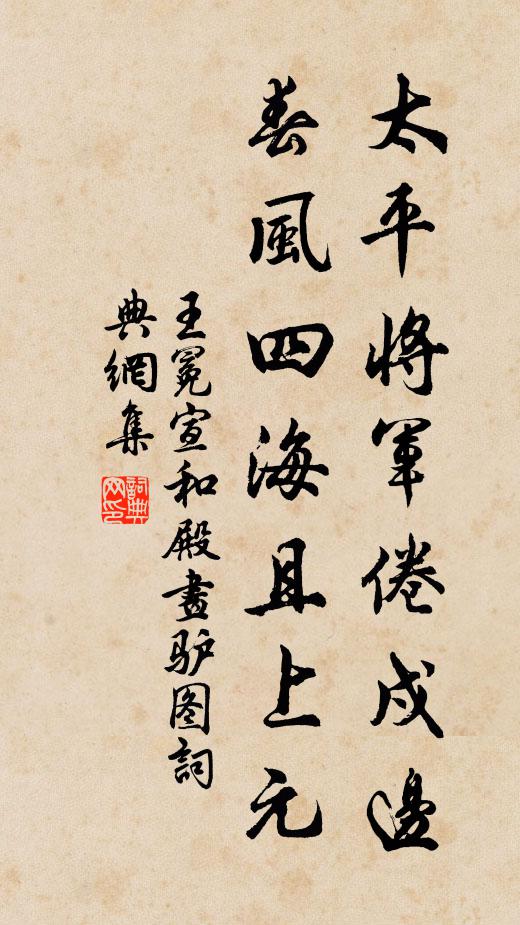 太平將軍倦戍邊
春風四海且上元
王冕宣和殿畫驴图詞
典網集
詞典网印